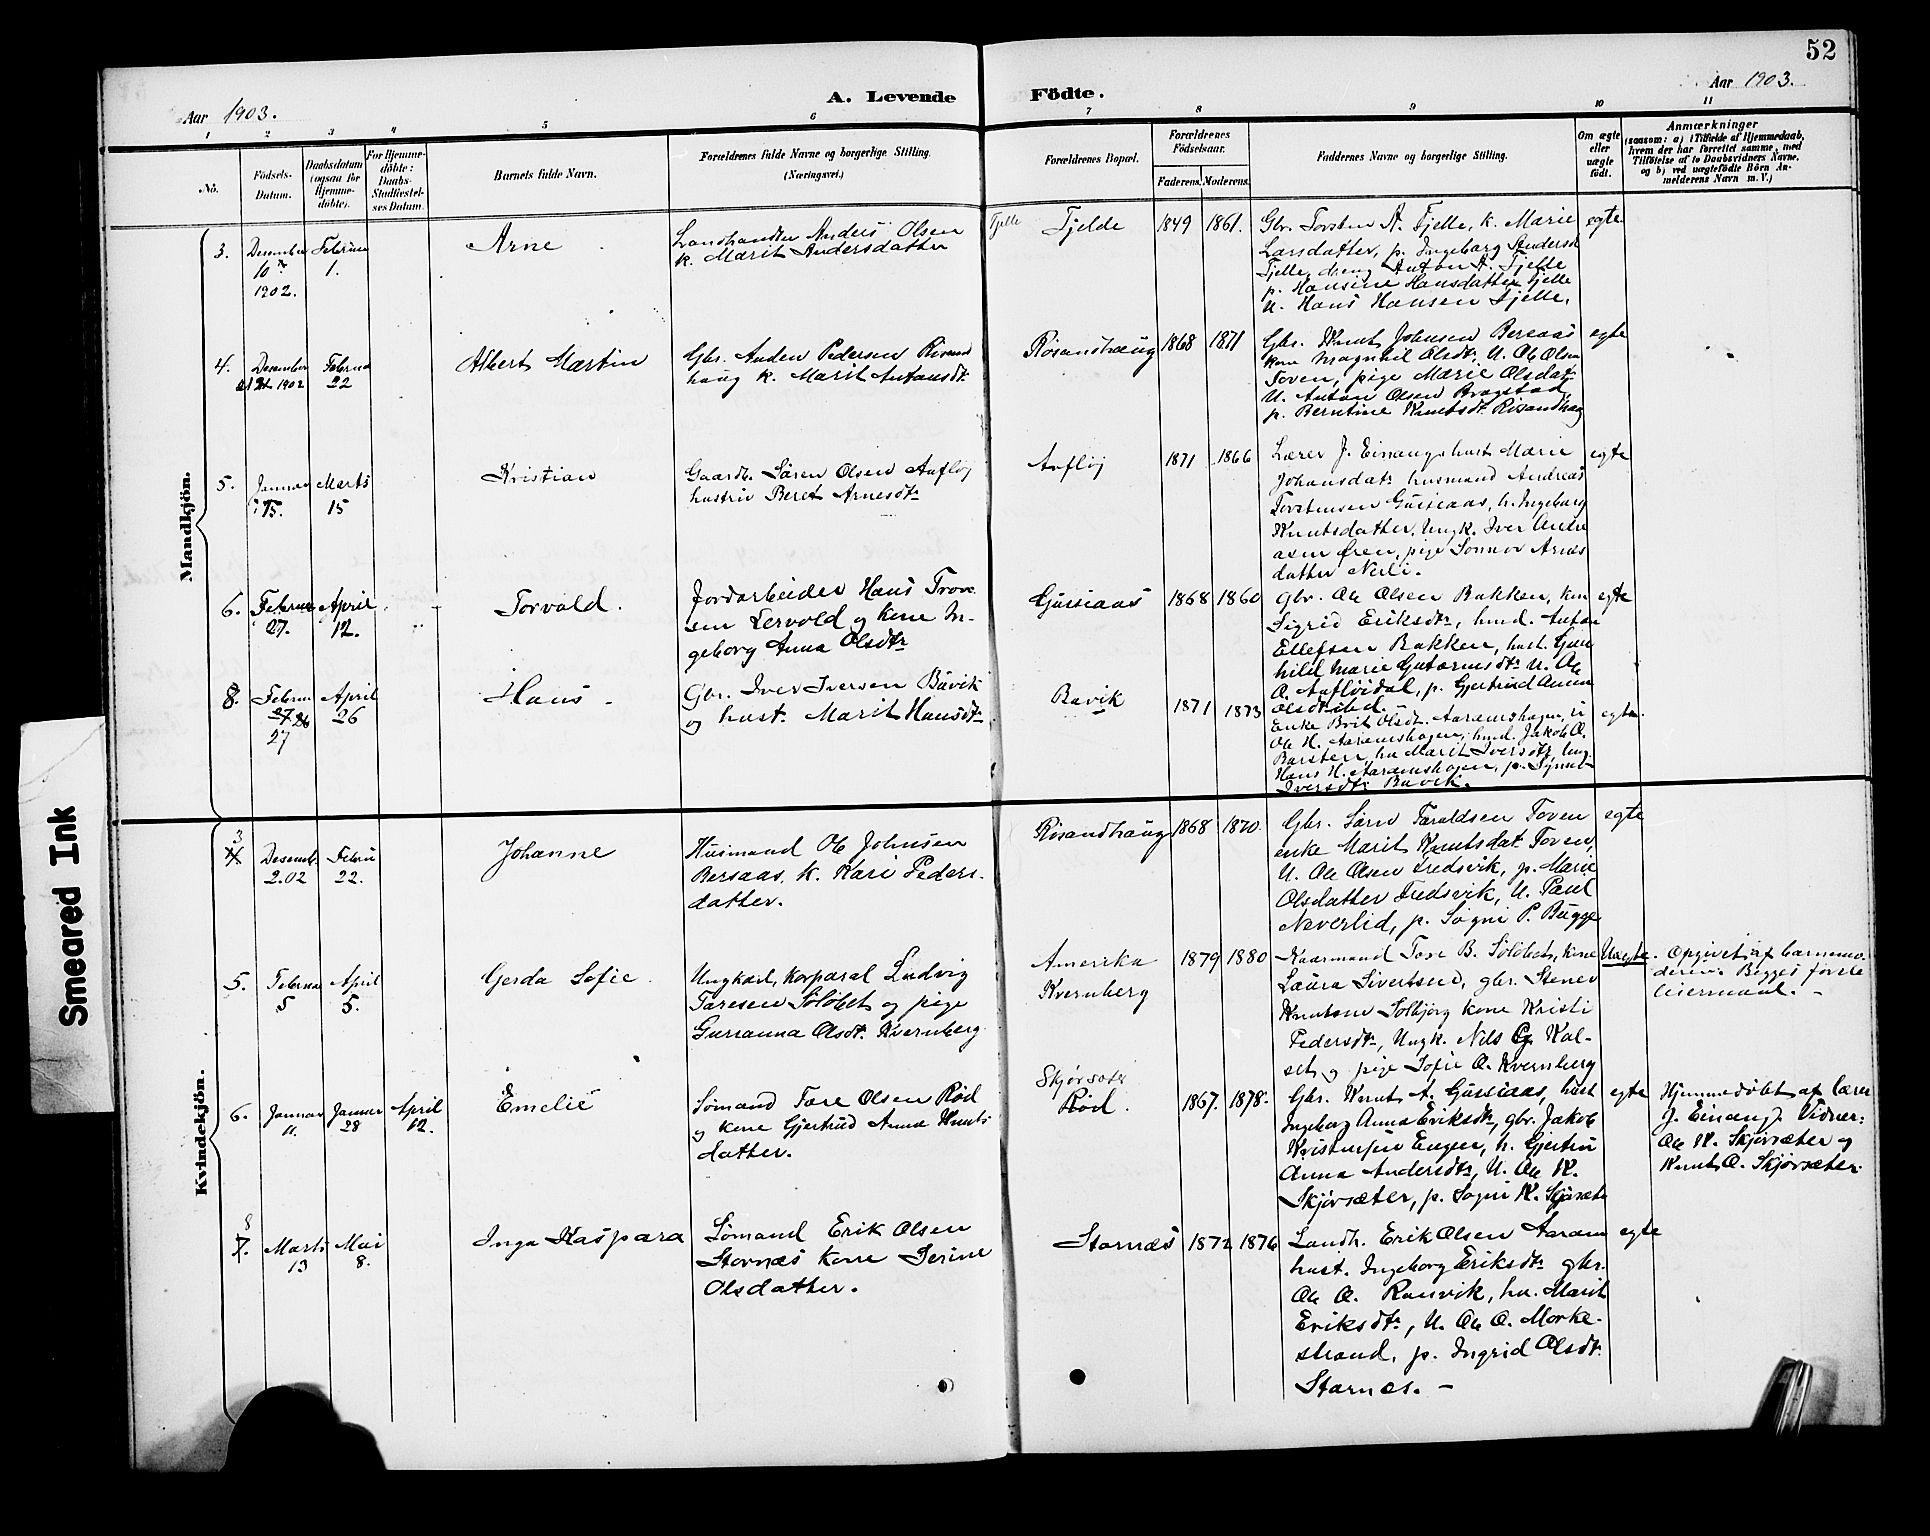 52
Aar 1903.
A. Levende
Födte.
Aar 1903.
1
2
3
4
5
6
7
8
9
10
11
No.
Födsels-
Datum.
Daabsdatum
(ogsaa for
Hjemme-
döbte).
For Hjemme-
döbte:
Daabs-
Stadfæstel-
ses Datum.
Barnets fulde Navn.
Forældrenes fulde Navne og borgerlige Stilling.
(Næringsvei.)
Forældrenes Bopæl.
Forældrenes
Födselsaar.
Faderens.
Moderens.
Faddernes Navne og borgerlige Stilling.
Om ægte
eller
uægte
födt.
Anmærkninger
(saasom: a) i Tilfælde af Hjemmedaab,
hvem der har forrettet samme, med
Tilföielse af to Daabsvidners Navne,
og b) ved uægtefödte Börn An-
melderens Navn m. V.)
Mandkjön.
3.
Desember
10
1902.
Februar
1.
Arne
Landhandler Anders Olsen
k. Marit Andersdatter
Tjelle
Tjelde
1849
1861.
Gbr. Torsten A. Tjelle, k. Marie
Larsdatter, p. Ingeborg Andersd
Tjelle, dreng Anton A. Tjelle
p. Hansine Hansdatter Tjelle
U. Hans Hansen Tjelle.
egte
4.
Desember
21 1902
Februa
22
Albert Martin
Gbr. Anden Pedersen Risand
haug k. Marit Antonsdt.
Røsandhaug
1868
1871
Gbr. Knut Johnsen Bersaas
kone Magnhil Olsdt. U. Ole Olsen
Toven, pige Marie Olsdat
U. Anton Olsen Bragstad,
p. Berntine Knutsdt. Risandhag
egte
5.
Januar
15.
Marts
15
Kristian
Gaardb. Søren Olsen Aufløj
hustru Beret Arnesdt.
Aufløj
1871
1866
Lærer J. Einangs hust Marie
Johansdat. husmand Andreas
Torstensen Gussiaas, h. Ingeborg
Knutsdatter, Ungk. Iver Andre
asen Øren, pige Sonnov Arnes
datter Nerli.
egte
6.
Februar
27.
April
12.
Torvald.
Jordarbeider Hans Trond
sen Lervold og kone In-
geborg Anna Olsdtr
Gussiaas
1868
1860
Gbr. Ole Olsen Bakken, kon
Sigrid Eriksdt., husd. Anton
Ellefsen Bakken, hust. Gun
hild Marie Gutormsdt. U. Ole
O. Aufløidal, p. Gjertrud Anna
Olsdt. ibd.
egte
8.
Februar
27 26
27
April
26
Hans.
Gbr. Iver Iversen Bavik
og hust. Marit Hansdt.
Bavik
1871
1873
Enke Brit Olsdt. Aaramshagen, U
Ole H. Aaramshagen, husd. Jakob O.
Barsten, hu Marit Iversdt, Ung.
Hans H. Aaramshagen, p. Synnø-
Iversdt. Bavik.
egte.
Kvindekjön.
3
4
Desemb.
2.02
Febru
22.
Johanne
Husmand Ole Johnsen
Bersaas. k. Kari Peders-
datter.
Risandhaug
1868
1870.
Gbr. Søren Taraldsen Toven
enke Marit Knutsdat. Toven,
U. Ole Olsen Fredsvik, p. Marie
Olsdatter Fredsvik, U. Paul
Neverlid, p. Sogni P. Bugge
egte
5.
Februa
5
April
5.
Gerda Sofie.
Ungkarl, korporal Ludvig
Toresen Solobet og pige
Gurianna Olsdt. Kvernberg.
Amerika
Kvernberg
1879
1880
Kaarmand Tore B. Solobet, kone
Laura Sivertsend, gbr. Stener
Knutsen Solbjørg kone Kristi
Pedersdt., Ungk. Nils Kal-
set og pige Sofie O. Kvernberg
Uægte.
Opgivet af barnemo-
deren. Begges første
leiermaal. -
6.
Januar
11.
Januar
28
April
12.
Emelie
Sømand Tore Olsen Rød
og kone Gjertrud Anna Knuts
datter.
Skjørseter
Rød.
1867.
1878.
Gbr. Knut A. Gussiaas, hust
Ingeborg Anna Eriksdt., gbr. Jakob
Kristensen Engen, h. Gjertru
Anna Andersdt., U. Ole K.
Skjørsæter, p. Sogni K. Skjørsæte
egte
Hjemmedøbt af lærer
J. Einang. Vidner:
Ole K. Skjørsæter og
Knut O. Skjørsæter.
8
7.
Marts
13
Mai
8.
Inga Kaspara
Sømand Erik Olsen
Stornæs kone Serine
Olsdatter.
Stornæs
1872
1876
Landh. Erik Olsen Aaram
hust. Ingeborg Eriksdt. gbr.
Ole O. Ranvik, hu. Marit
Eriksdt., U. Ole O. Morke-
strand, p. Ingrid Olsdt.
Stornes. -
egte
Smeared Ink